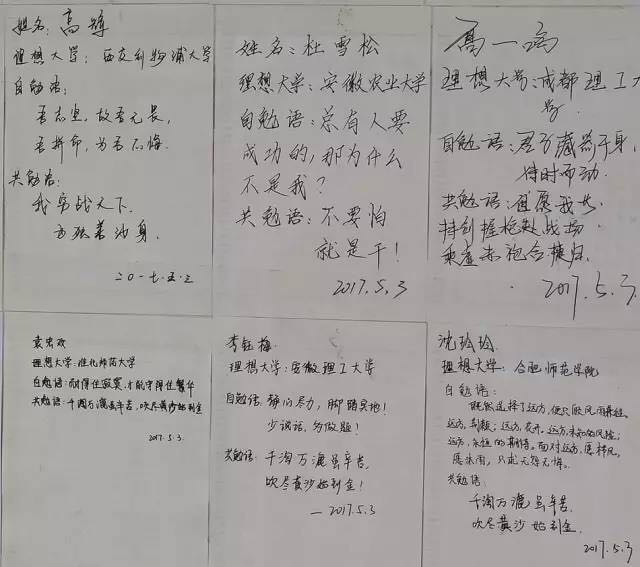 姓名：高
理想大学：西交利物浦大学
自勉语：
吾志坚，故吾无畏，
吾拼命，为吾不悔．
共勉语：
我 战天下．
身．
二〇一七．五．三
姓名：杜雪松
理想大学：安徽农业大学
自勉语：总有人要
成功的，那为什么
不是我？
共勉语：不要怕
就是干！
2017.5.3
高一
理想大学：成都理工大
学．
自勉语：君子藏器于身，
待时而动．
共勉语：但愿
持剑握枪赴战场．
合
2017.5.3
袁
理想大学：淮北师范大学
自勉语：耐得住寂寞，才能守得住繁华
共勉语：千淘万漉虽辛苦，吹尽黄沙始到金
2017.5.3
李钰梅
理想大学：安徽理工大学
自勉语：静心尽力，脚踏实地！
少说话，多做题！
共勉语：千淘万漉虽辛苦，
吹尽黄沙始到金！
—2017.5.3
沈玲玲．
理想大学：合肥师范学院
自勉语：
既然选择了远方，便只顾风雨兼程．
远方，荆棘；远方，花开．远方，未知的风险；
远方，永恒的期待．面对远方，愿
只求无怨无悔．
共勉语．
千淘万漉虽辛苦．
吹尽黄沙始到金．
2017.5.3